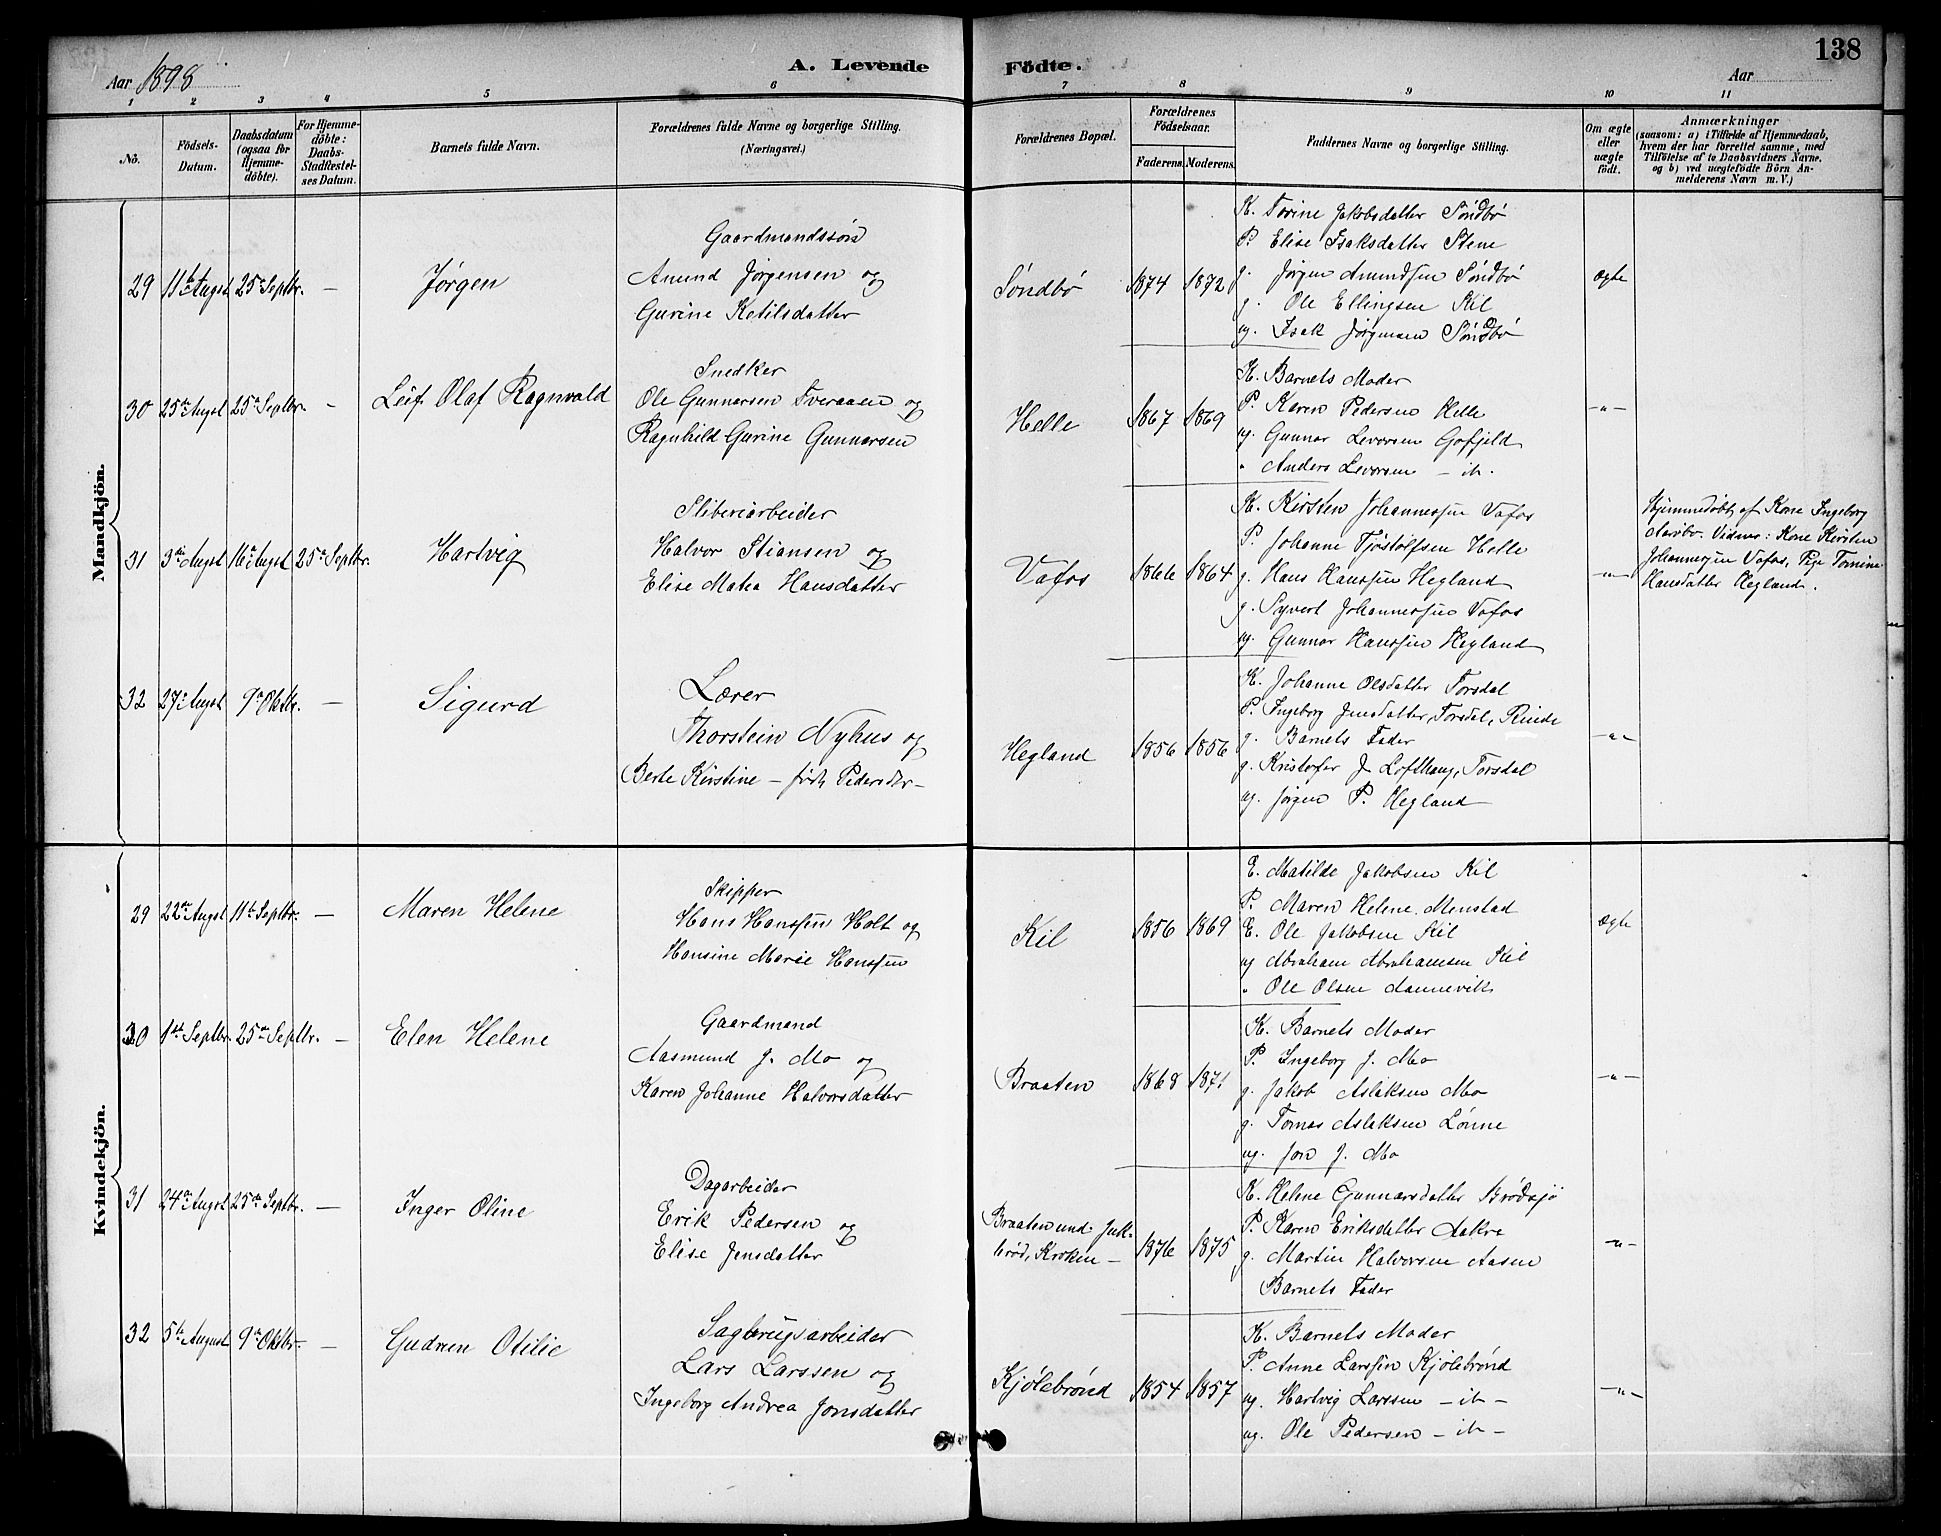 Aar 1898.
A. Levende Födte.
Aar
138
1 2 3 4 5 6 7 8 9 10 11
No.
Födsels-Datum.
Daabsdatum (ogsaa for Hjemme-döbte).
For Hjemme-döbte: Daabs-Stadfæstel-ses Datum.
Barnets fulde Navn.
Forældrenes fulde Navne og borgerlige Stilling.
(Næringsvei.)
Forældrenes Bopæl.
Forældrenes Födselsaar.
Faderens. Moderens.
Faddernes Navne og borgerlige Stilling.
Om ægte eller uægte födt.
Anmærkninger
(saasom: a) i Tilfælde af Hjemmedaab,
hvem der har forrettet samme, med
Tilföielse af to Daabsvidners Navne.
og b) ved uægtefödte Börn An-
melderens Navn m. V.)
Mandkjön.
29 11te Augst 25de Septbr. — Jørgen
Gaardmandssøn
Amund Jørgensen og
Gurine Ketilsdatter
Søndbø 1874 1872
K. Torine Jakobsdatter Søndbø
P. Elise Isaksdatter Stene
g. Jørgen Amundsen Søndbø
g. Ole Ellingsen Kil
ug. Isak Jørgensen Søndbø
ægte
30 25de Augst 25de Septbr. — Leif Olaf Ragnvald
Snedker
Ole Gunnarsen Tveraaen og
Ragnhild Gurine Gunnarsen
Helle 1867 1869
K. Barnets Moder
P. Karen Pedersen Helle
ug. Gunnar Levorsen Gofjeld
" Anders Levorsen — it.
—"—
31 3die Augst 16de Augst 25de Septbr. Hartvig
Sliberiarbeider
Halvor Stiansen og
Elise Matea Hansdatter
Vafos 1866 1864
K. Kirsten Johannessen Vafos
P. Johanne Tjostolfsen Helle
g. Hans Hanssen Hegland
g. Syvert Johannessen Vafos
ug. Gunnar Hanssen Hegland
—"—
Hjemmedøbt af Kone Ingeborg
Aarøbro. Vidner: Kone Kirsten
Johannessen Vafos, Pige Tomine
Hansdatter Hegland.
32 27de Augst 9de Oktbr. — Sigurd
Lærer
Thorstein Nyhus og
Berte Kirstine — født Pedersdtr —
Hegland 1856 1856
K. Johanne Olsdatter Torsdal
P. Ingeborg Jensdatter, Torsdal, Rinde
g. Barnets Fader
g. Kristofer J. Lofthaug, Torsdal
ug. Jørgen P. Hegland
—"—
Kvindekjön.
29 22de Augst 11te Septbr. — Maren Helene
Skipper
Hans Hanssen Holt og
Hansine Marie Hanssen
Kil 1856 1869
E. Matilde Jakobsen Kil
P. Maren Helene Menstad
E. Ole Jakobsen Kil
ug Abraham Abrahamsen Kil
" Ole Olsen Aannevik
ægte
30 1ste Septbr. 25de Septbr. — Elen Helene
Gaardmand
Aasmund J. Mo og
Karen Johanne Halvorsdatter
Braaten 1868 1871
K. Barnets Moder
P. Ingeborg J. Mo
g. Jakob Aslaksen Mo
g. Tomas Aslaksen Lønne
ug. Jon J. Mo
—"—
31 24de Augst 25de Septbr. — Inger Oline
Dagarbeider
Erik Pedersen og
Elise Jensdatter
Braaten und.
Kroken — 1876 1875
K. Helene Gunnarsdatter Brødsjø
P. Karen Eriksdatter Aakre
g. Martin Halvorsen Aasen
Barnets Fader
—"—
32 5te August 9de Oktbr. — Gudrun Otilie
Sagbrugsarbeider
Lars Larssen og
Ingeborg Andrea Jonsdatter
Kjølebrønd 1854 1857
K. Barnets Moder
P. Anne Larssen Kjølebrønd
ug. Hartvig Larssen — it —
ug. Ole Pedersen — it —
—"—